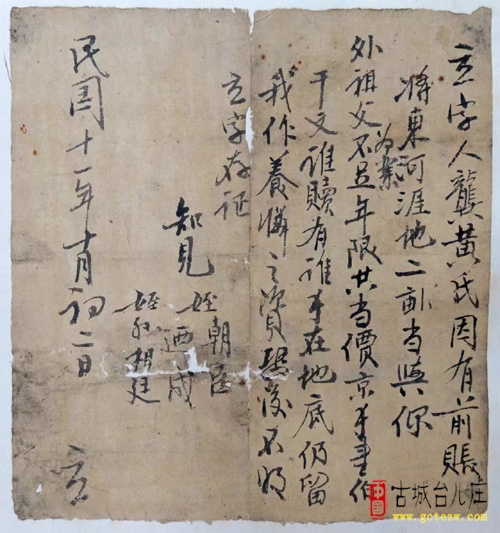 立字人龔黃氏因有前賬
將東河涯地二畝当與你
外祖父為業不足年限共当價京才壹伯
千文誰贖有誰才在地底仍留
我作養之資恐後不明
立字存证
知見 姪朝臣
廼成
姪孙朝廷
民國十一年十月初二日
立
中国 古城台儿庄
www.gotezw.com